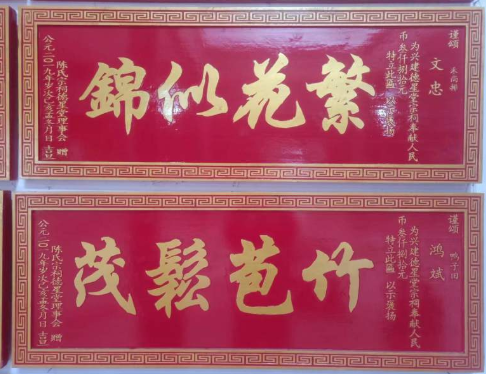 谨颂
文忠
为兴建德星堂宗祠奉献人民
币叁仟捌拾元
特立此匾 以示褒扬
繁花似錦
陈氏宗祠德星堂理事会 赠
公元二〇一九年岁次己亥孟冬月日 吉旦
谨颂
鸭子田
鸿斌
为兴建德星堂宗祠奉献人民
币叁仟捌拾元
特立此匾 以示褒扬
竹苞鬆茂
陈氏宗祠德星堂理事会 赠
公元二〇一九年岁次己亥孟冬月日 吉旦